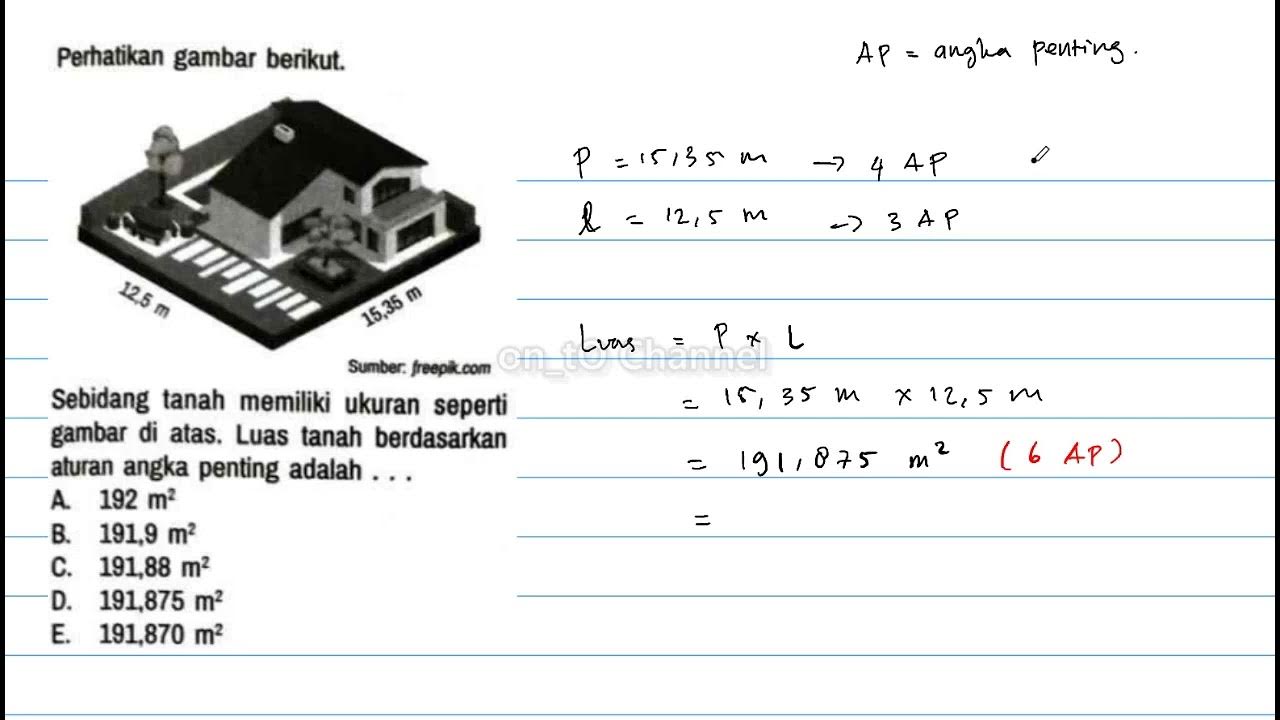 Perhatikan gambar berikut.
12,5 m
15,35 m
Sumber: freepik.com
Sebidang tanah memiliki ukuran seperti
gambar di atas. Luas tanah berdasarkan
aturan angka penting adalah . . .
A. 192 m²
B. 191,9 m²
C. 191,88 m²
D. 191,875 m²
E. 191,870 m²
AP = angka penting.
P = 15,35 m → 4 AP
l = 12,5 m → 3 AP
Luas = P x L
on_to Channel
= 15,35 m x 12,5 m
= 191,875 m² (6 AP)
=